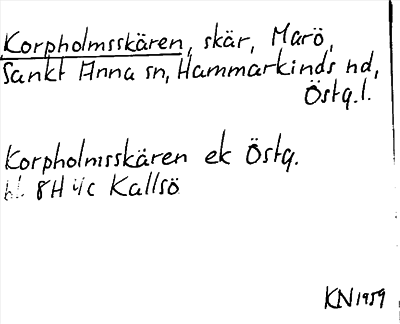 Korpholmsskären, skär, Marö,
Sankt Anna sn, Hammarkinds hd,
Östg.l.
Korpholmsskären ek Östg.
bl. 8H i/c Kallsö
KN 1959